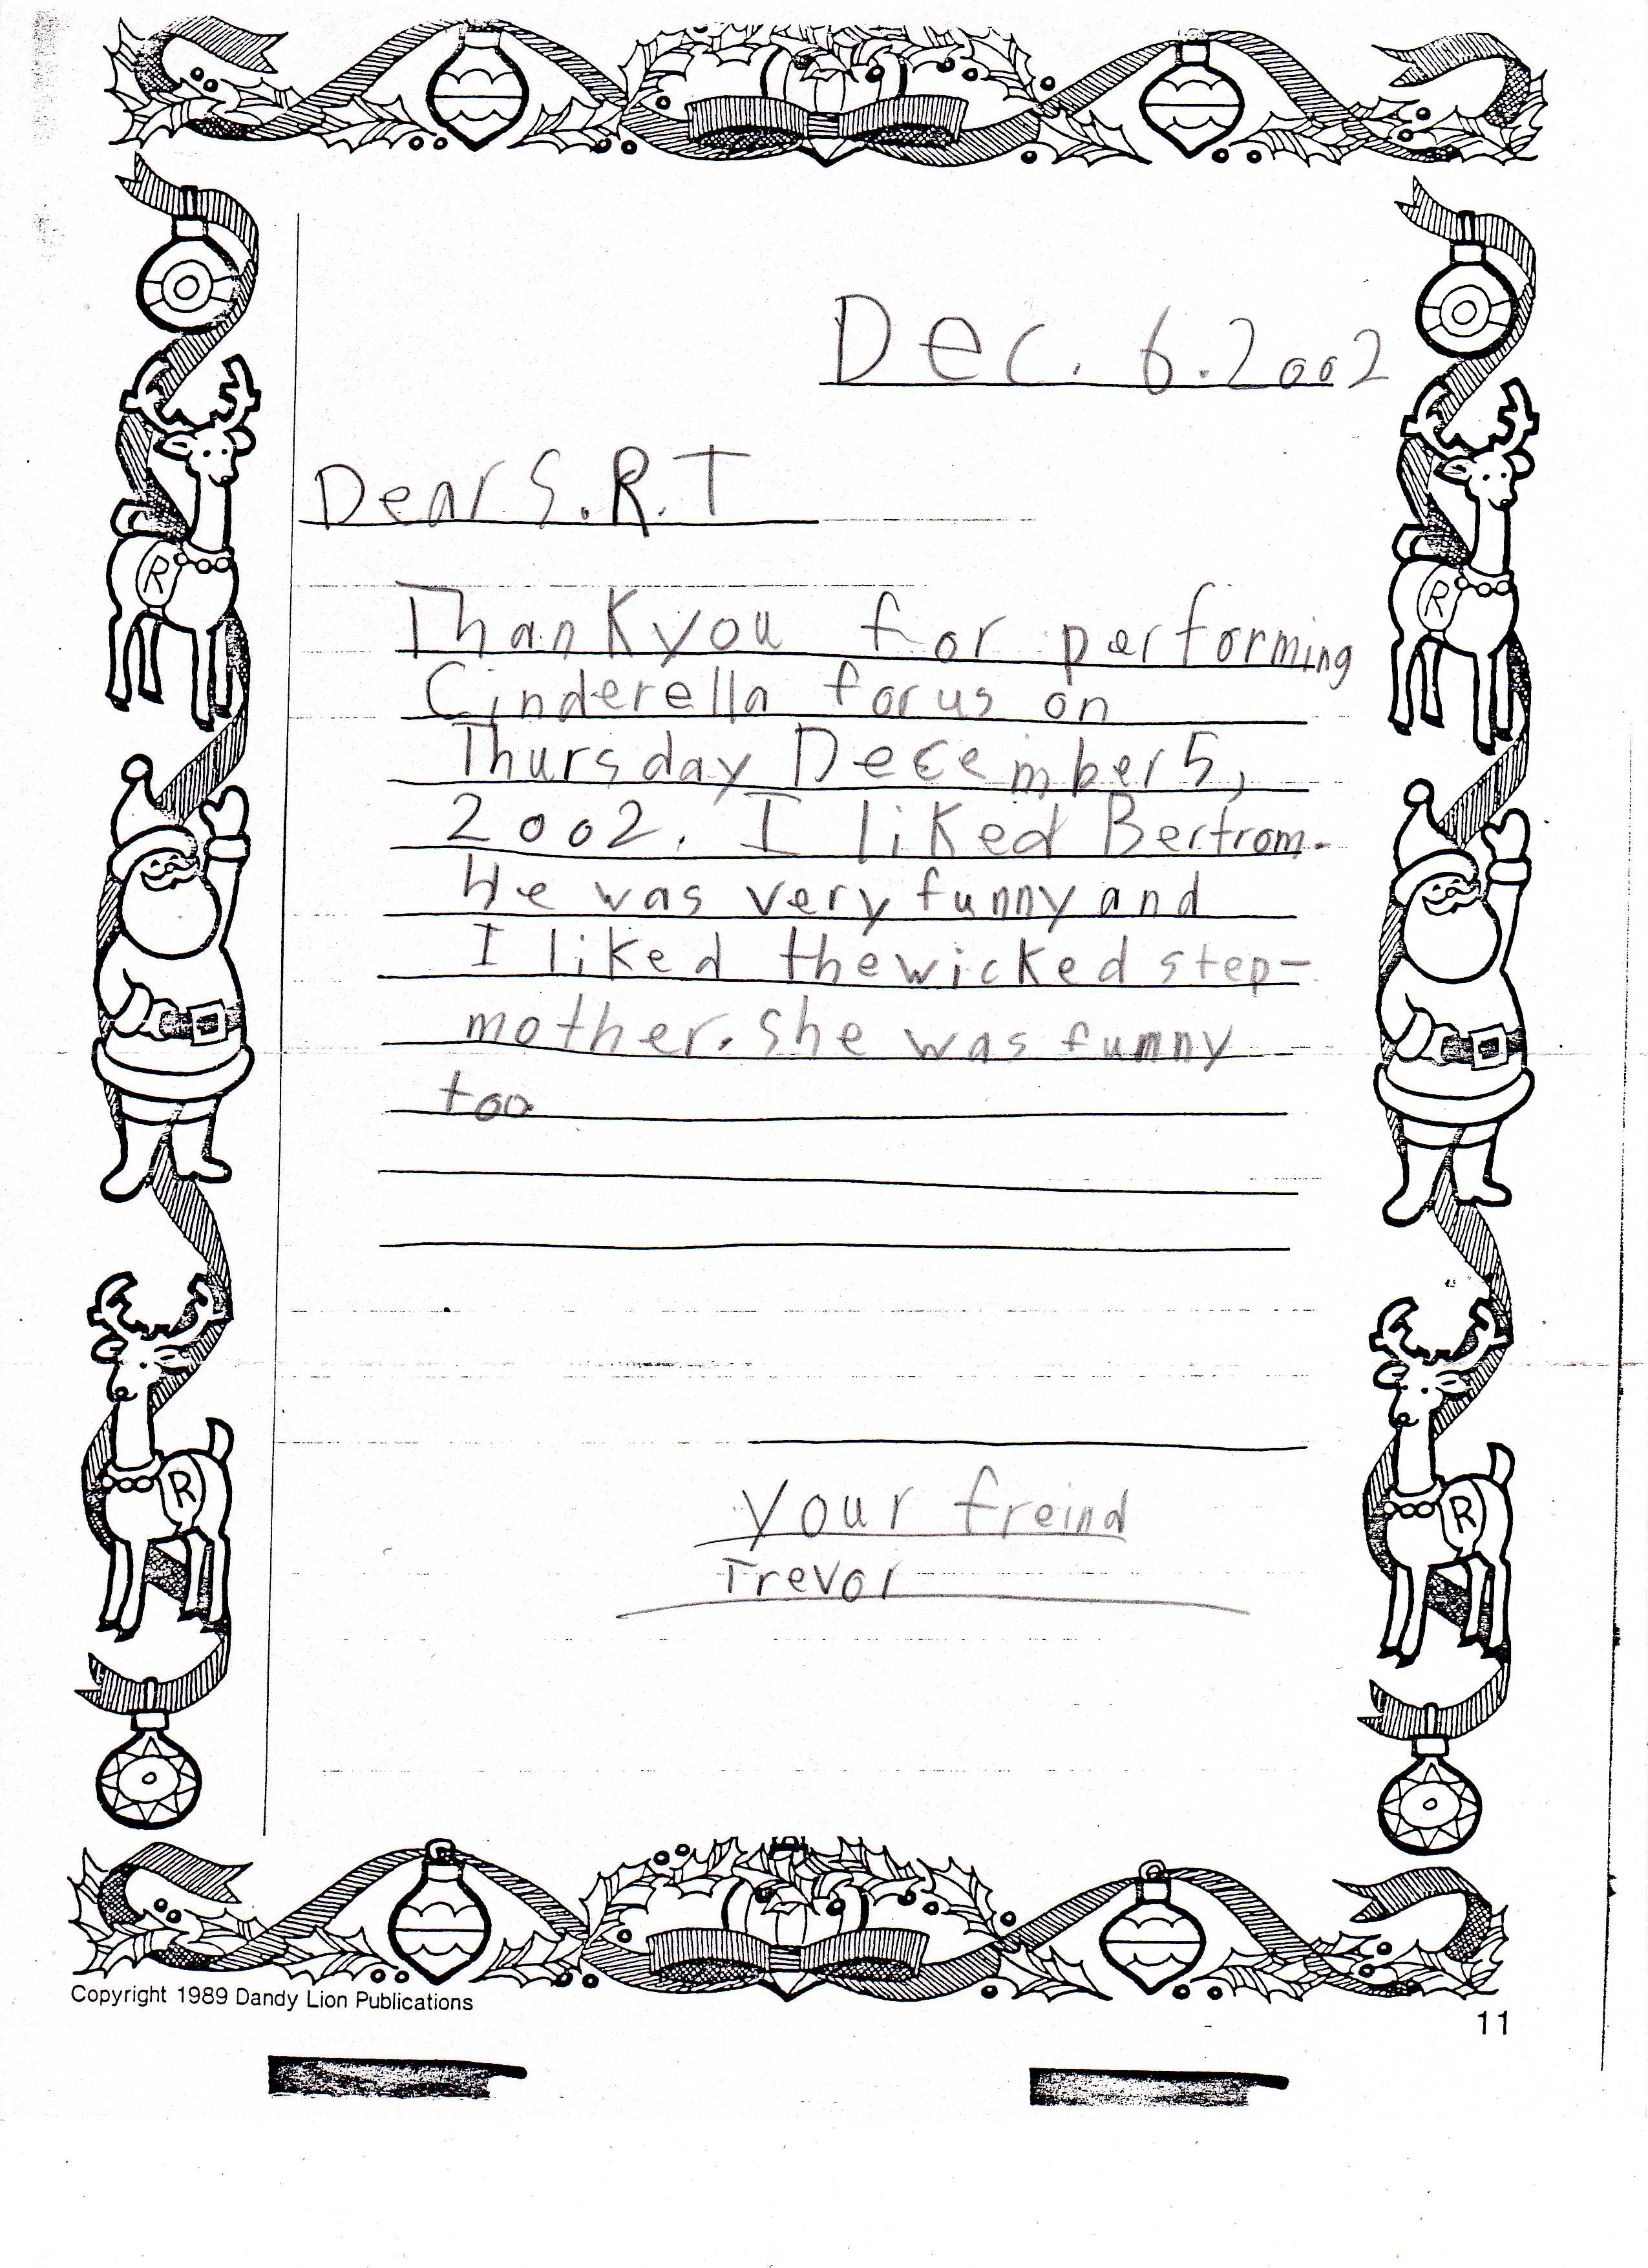 Dec. 6. 2002
Dear S.R.T
Thank you for performing
Cinderella for us on
Thursday December 5,
2002. I liked Bertrom.
He was very funny and
I liked the wicked step-
mother. She was funny
too.
your freind
Trevor
R
R
R
R
Copyright 1989 Dandy Lion Publications
11